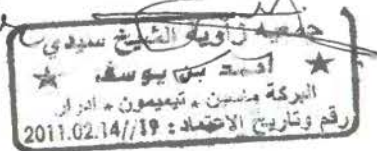 جمعية زاوية الشيخ سيدي
احمد بن يوسف
البركة ماسين - تيميمون - ادرار
رقم وتاريخ الاعتماد : 19//2011.02.14